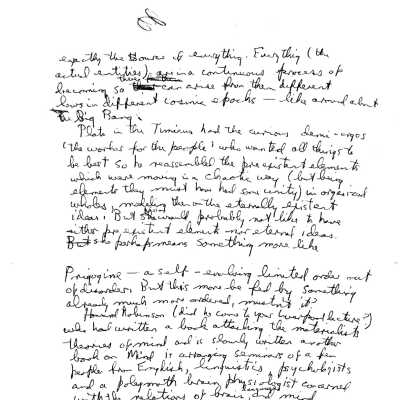 exactly the source of everything. Everything (the
actual entities) are in a continuous process of
becoming so there can arise from them different
laws in different cosmic epochs — like around about
the Big Bang.
Plato in the Timaeus had the curious demi-orgos
'the worker for the people' who wanted all things to
be best so he reassembled the preexistent elements
which were moving in a chaotic way (but being
elements they must have had some unity) in organised
wholes, modeling them on the eternally existent
ideas. But she would probably not like to have
either preexistent elements nor eternal ideas.
But she perhaps means something more like
Prigogine — a self-evolving limited order out
of disorder. But this more be fed by something
already much more ordered, mustn't it
Howard Robinson (did he come to your lecture?)
who had written a book attacking the materialist
theories of mind and is slowly written another
book on Mind is arranging seminars of a few
people from English, linguistics, psychologists
and a polymath brain physiologist concerned
with the relations of brain, and mind